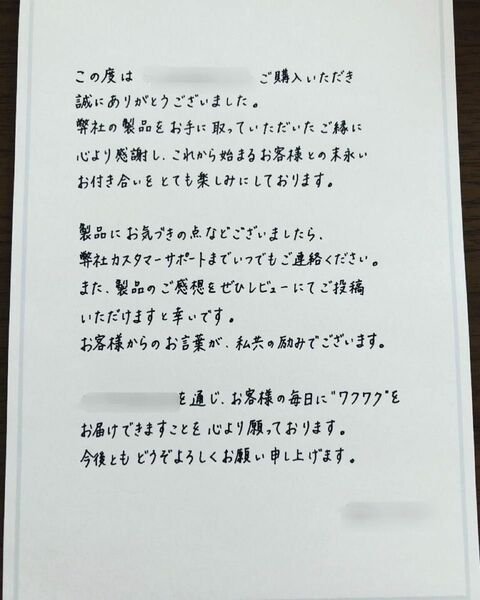 この度は ご購入いただき
誠にありがとうございました。
弊社の製品をお手に取っていただいたご縁に
心より感謝し、これから始まるお客様との末永い
お付き合いをとても楽しみにしております。
製品にお気づきの点などございましたら、
弊社カスタマーサポートまでいつでもご連絡ください。
また、製品のご感想をぜひレビューにてご投稿
いただけますと幸いです。
お客様からのお言葉が、私共の励みでございます。
を通じ、お客様の毎日に"ワクワク"を
お届けできますことを心より願っております。
今後ともどうぞよろしくお願い申し上げます。